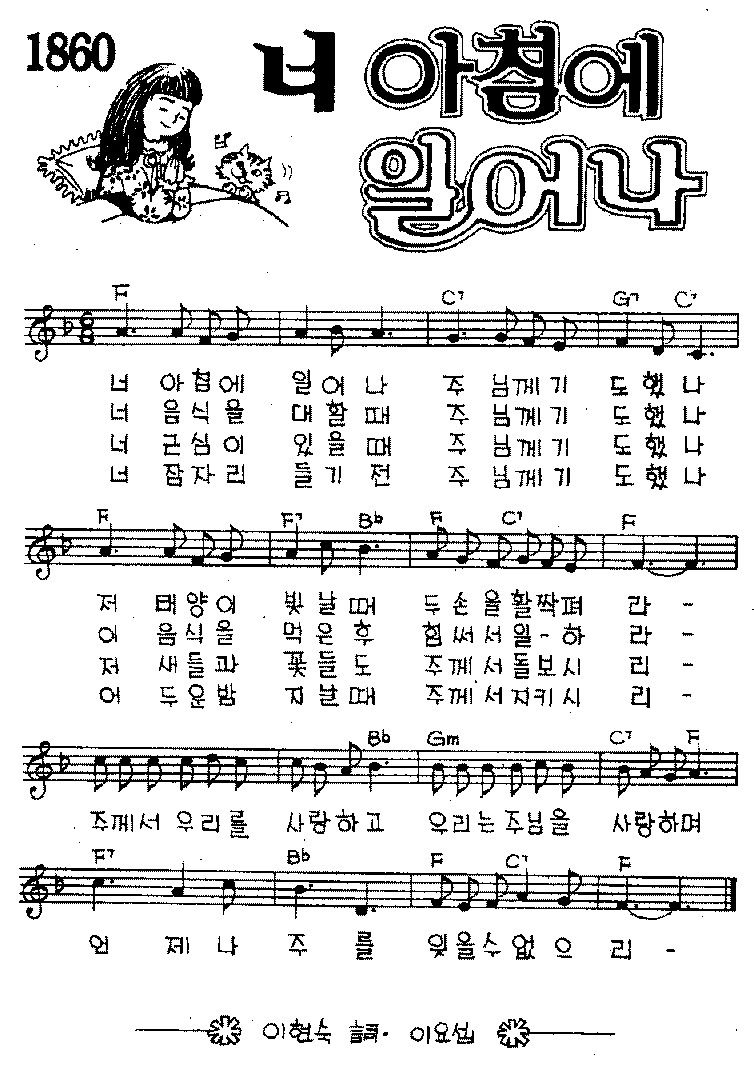 1860
너 아침에
일어나
F C7 G7 C7
너 아침에 일어나 주님께기 도했나
너 음식을 대할때 주님께기 도했나
너 근심이 있을때 주님께기 도했나
너 잠자리 들기전 주님께기 도했나
F F7 Bb F C7 F
저 태양이 빛날때 두손을활짝펴 라 -
이 음식을 먹은후 힘써서일-하 라 -
저 새들과 꽃들도 주께서돌보시 리 -
어 두운밤 지날때 주께서지키시 리 -
Bb Gm C7 F
주께서 우리를 사랑하고 우리는주님을 사랑하며
F7 Bb F C7 F
언 제나 주 를 잊을수없으 리 -
이현숙